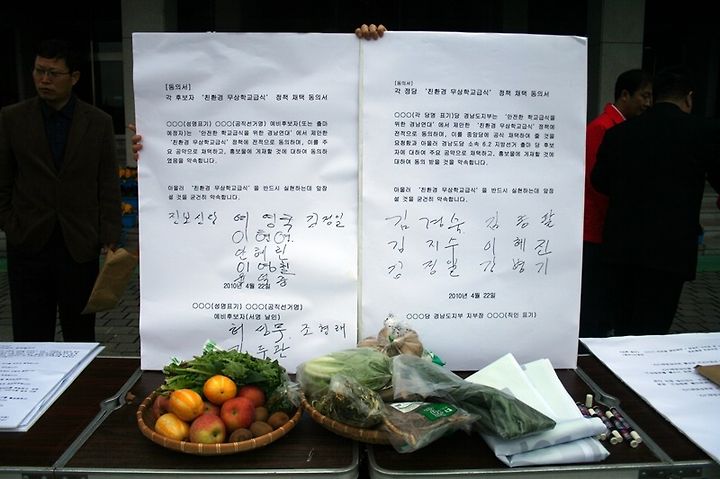 [동의서]
각 후보자 '친환경 무상학교급식' 정책 채택 동의서
○○○(성명표기) ○○○(공직선거명) 예비후보자(또는 출마
예정자)는 '안전한 학교급식을 위한 경남연대' 에서 제안한
'친환경 무상학교급식' 정책에 전적으로 동의하며, 이를 주
요 공약으로 채택하고, 홍보물에 게재할 것에 대하여 동의
하였음을 약속합니다.
아울러 '친환경 무상학교급식' 을 반드시 실현하는데 앞장
설 것을 굳건히 약속합니다.
진보신당 여영국 김정일
2010년 4월 22일
○○○(성명표기) ○○○(공직선거명)
예비후보자(서명 날인)
허성무 조형래
[동의서]
각 정당 '친환경 무상학교급식' 정책 채택 동의서
○○○(각 당명 표기)당 경남도지부는 '안전한 학교급식을
위한 경남연대' 에서 제안한 '친환경 무상학교급식' 정책에
전적으로 동의하며, 이를 중앙당에 공식 채택하여 줄 것을
요청함과 아울러 경남도당 소속 6.2 지방선거 출마 당 후보
자에 대하여 주요 공약으로 채택하고, 홍보물에 게재할 것에
대하여 동의 받을 것을 약속합니다.
아울러 '친환경 무상학교급식' 을 반드시 실현하는데 앞장
설 것을 굳건히 약속합니다.
김경숙 김종팔
김지수 이혜진
김정일 강병기
2010년 4월 22일
○○○당 경남도지부 지부장 ○○○(직인 표기)